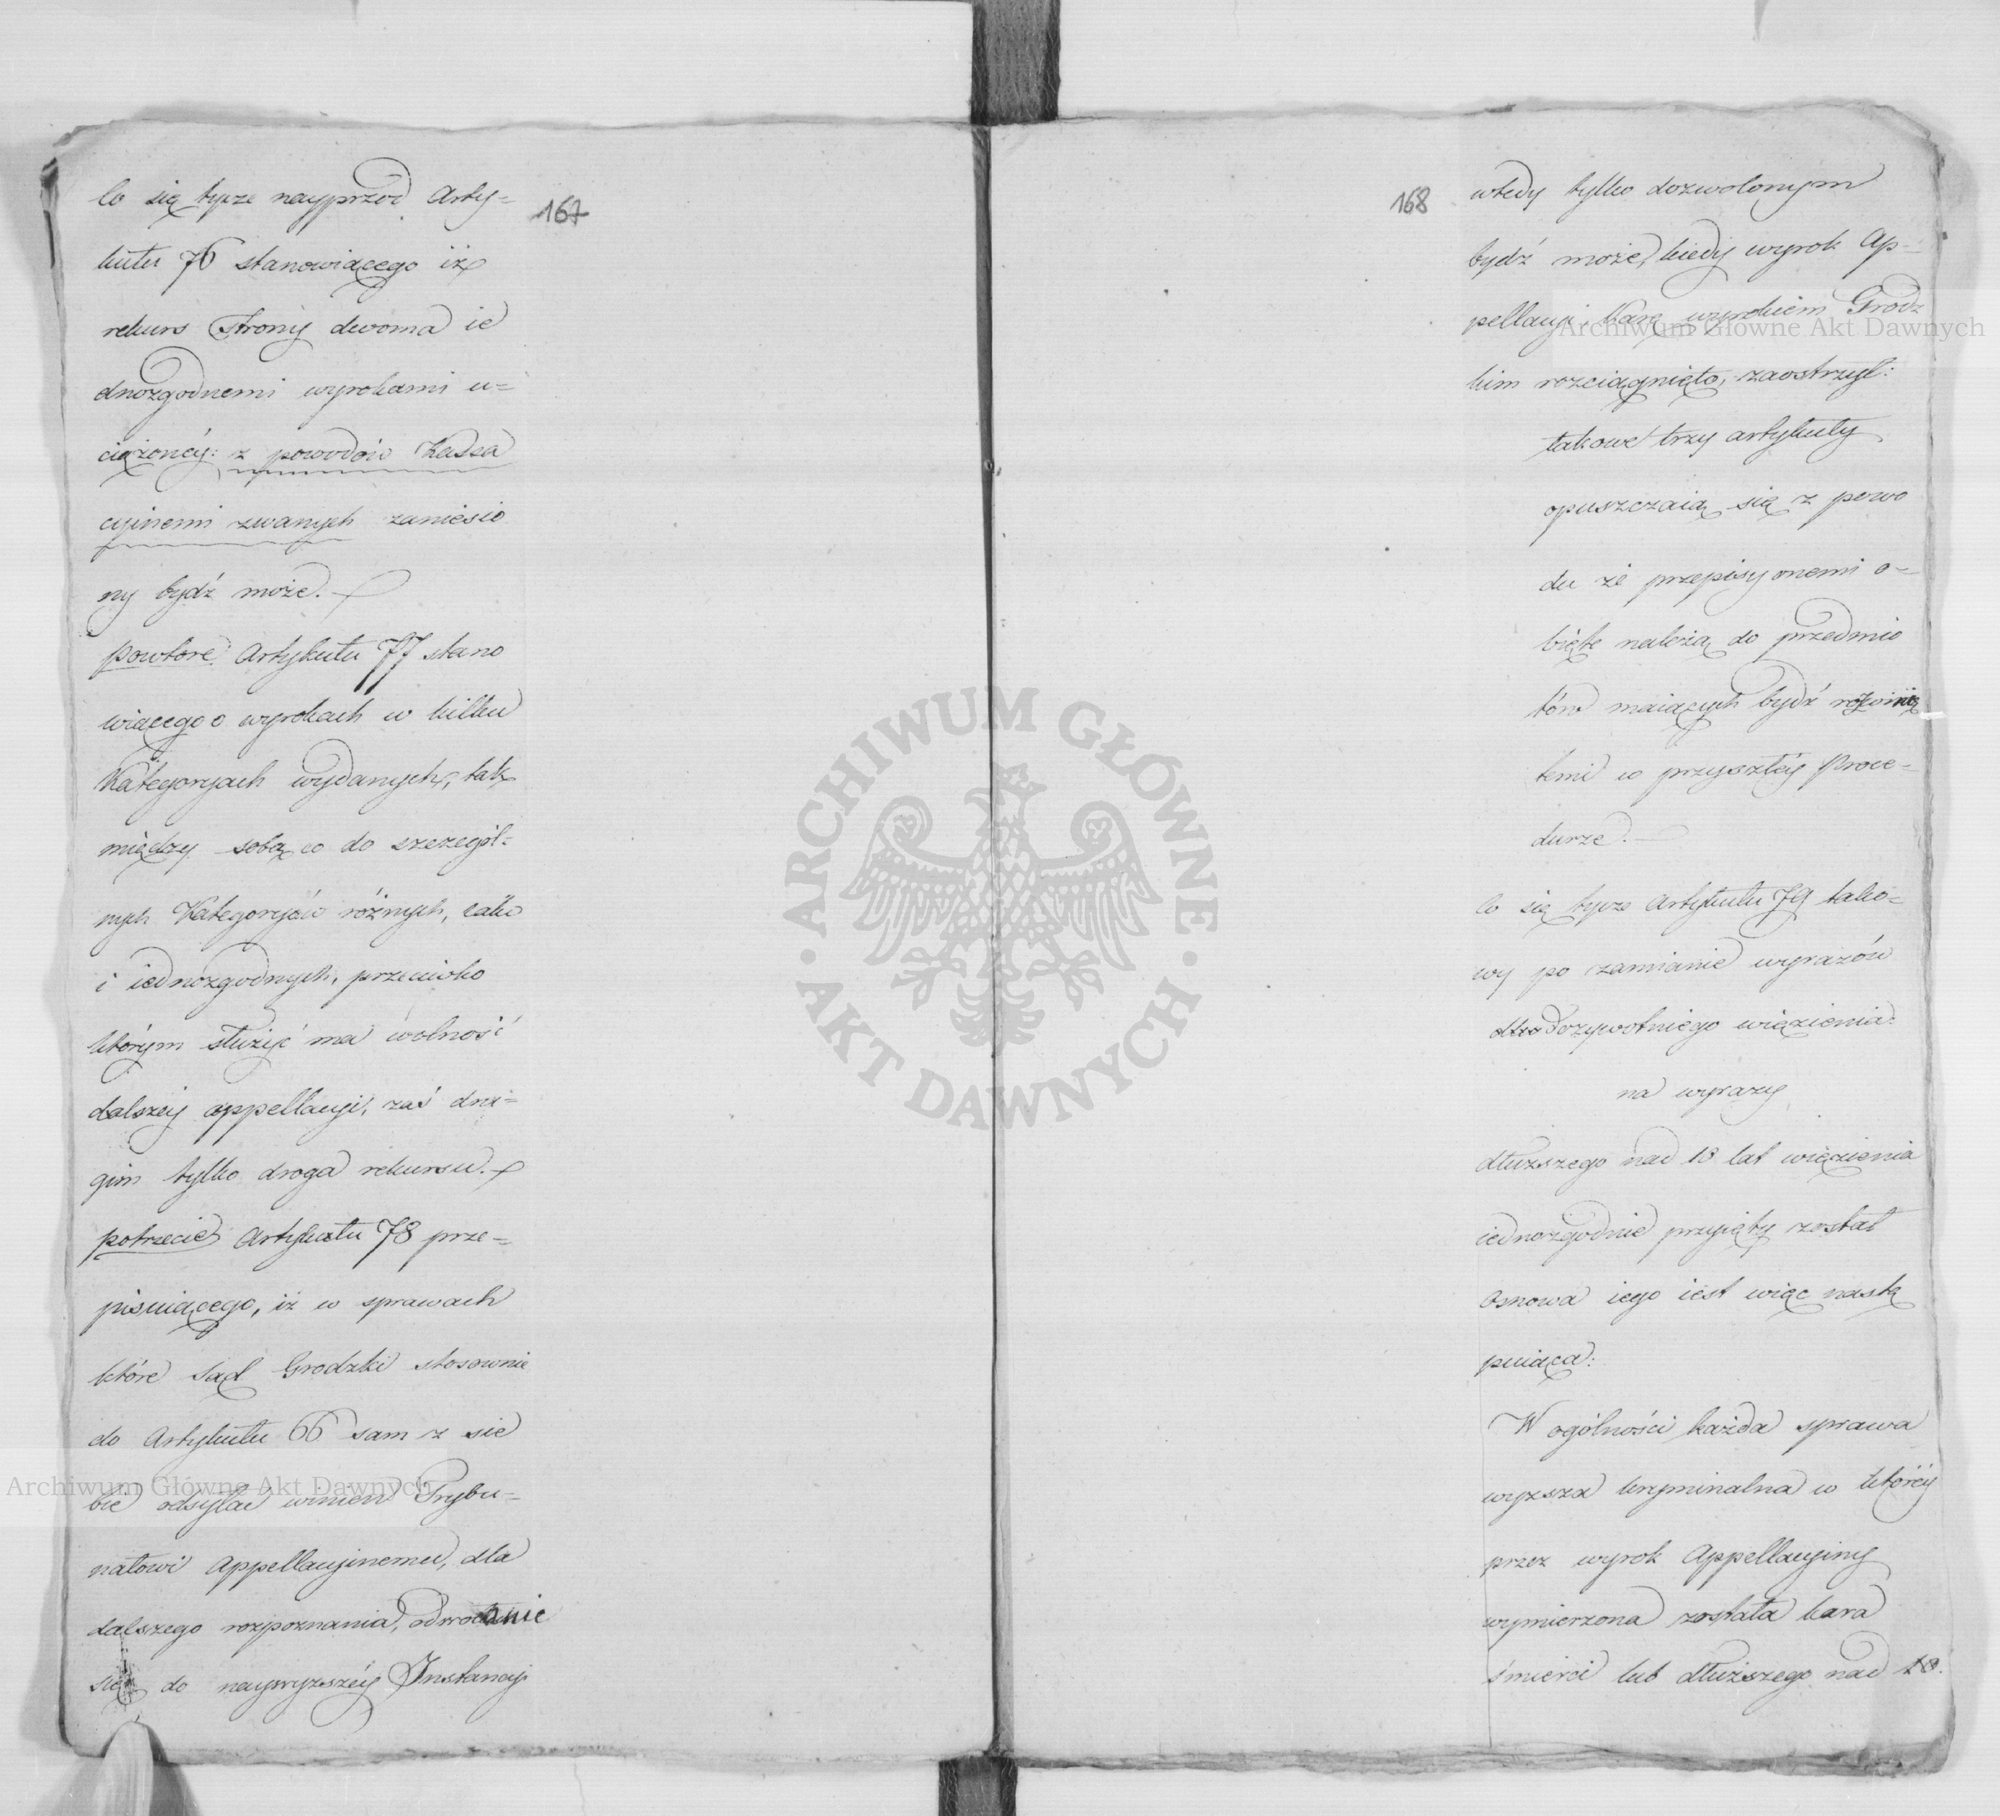 167
Co się tycze nayprzód Arty-
kułu 76 stanowiącego iż
rekurs Strony dwoma ie
dnozgodnemi wyrokami u-
ciążonéy: z powodów Kassa
cyinemi zwanych zaniesio
ny bydź może.
powtóre Artykułu 77 stano
wiącego o wyrokach w kilku
Kategoryach wydanych, tak
między sobą co do szczegól-
nych Kategoryów różnych, iako
i iednozgodnych, przeciwko
którym służyć ma wolność
dalszey appellacyi, zaś dru-
gim tylko droga rekursu.
potrzecie Artykułu 78 prze-
pisuiącego, iż w sprawach
które Sąd Grodzki stosownie
do Artykułu 66 sam z sie
bie odsyłać winien Trybu-
nałowi Appellacyinemu, dla
dalszego rozpoznania, odwołanie
się do naywyższéy Instancyi
168
wtedy tylko dozwolonym
bydź może, kiedy wyrok Ap-
pellacyi karę wyrokiem Grodz
kim rozciągnięto, zaostrzył:
takowe trzy artykuły
opuszczaią się z powo
du że przepisy onemi o-
bięte należą do przedmio
tów maiących bydź rozwinię
temi w przyszłéy Proce-
durze.
Co się tycze Artykułu 79 tako-
wy po zamianie wyrazów
Dożywotniego więzienia:
na wyrazy
dłuższego nad 10 lat więzienia
iednozgodnie przyięty został
Osnowa iego iest więc nastę
puiąca:
W ogólności każda sprawa
wyższa kryminalna w któréy
przez wyrok Appellacyiny
wymierzona została kara
śmierci lub dłuższego nad 10.
ARCHIWUM GŁÓWNE
AKT DAWNYCH
Archiwum Główne Akt Dawnych
Archiwum Główne Akt Dawnych